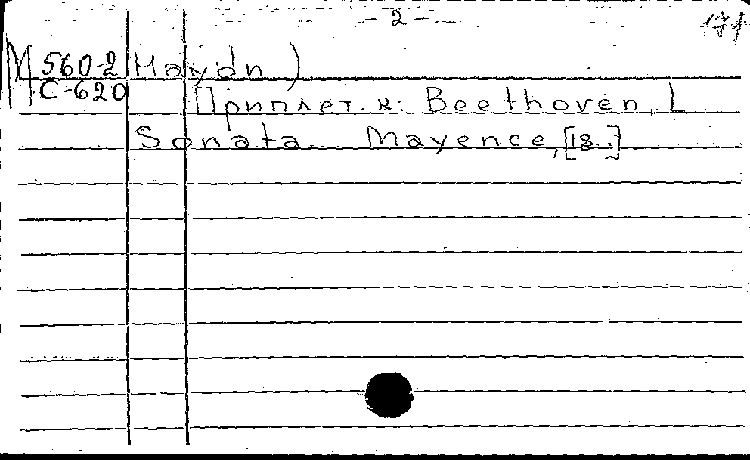 - 2 -
М 560-2 Haydn )
С-620
Приплет. к: Beethoven, L
Sonata... Mayence, [18..]